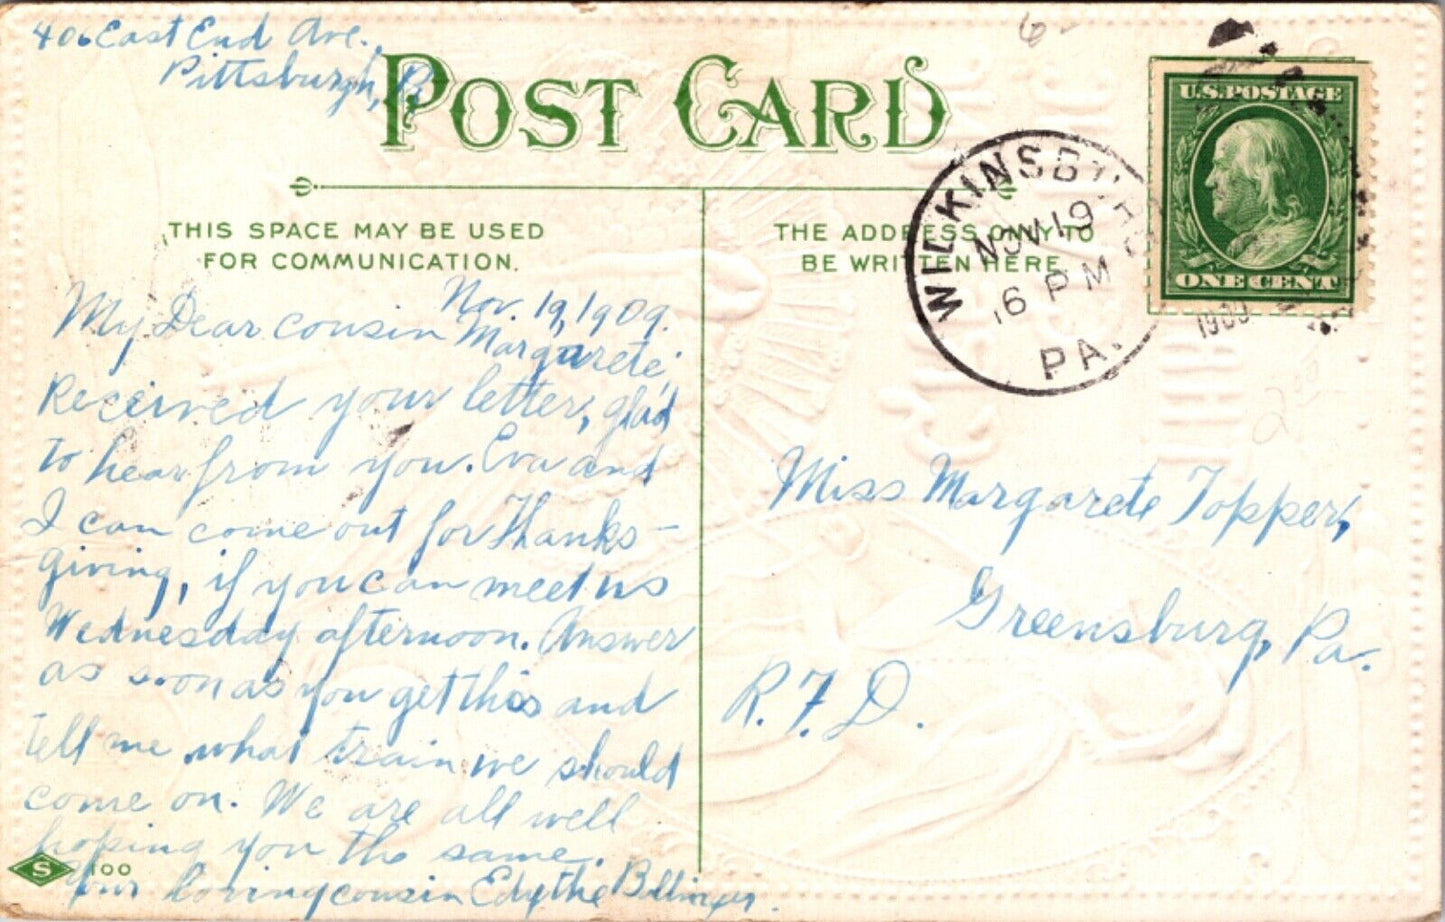 406 East End Ave.
Pittsburgh, P
POST CARD
THIS SPACE MAY BE USED
FOR COMMUNICATION.
THE ADDRESS ONLY TO
BE WRITTEN HERE
U.S. POSTAGE
ONE CENT
WILKINSBURG
NOV 19
6 PM
PA.
1909
Nov. 19, 1909.
My Dear cousin Margarete,
Received your letter, glad
to hear from you. Eva and
I can come out for Thanks-
giving, if you can meet us
Wednesday afternoon. Answer
as soon as you get this and
tell me what train we should
come on. We are all well
hoping you the same.
Your loving cousin Edythe Bollinger.
S 100
Miss Margarete Topper,
Greensburg, Pa.
R.F.D.